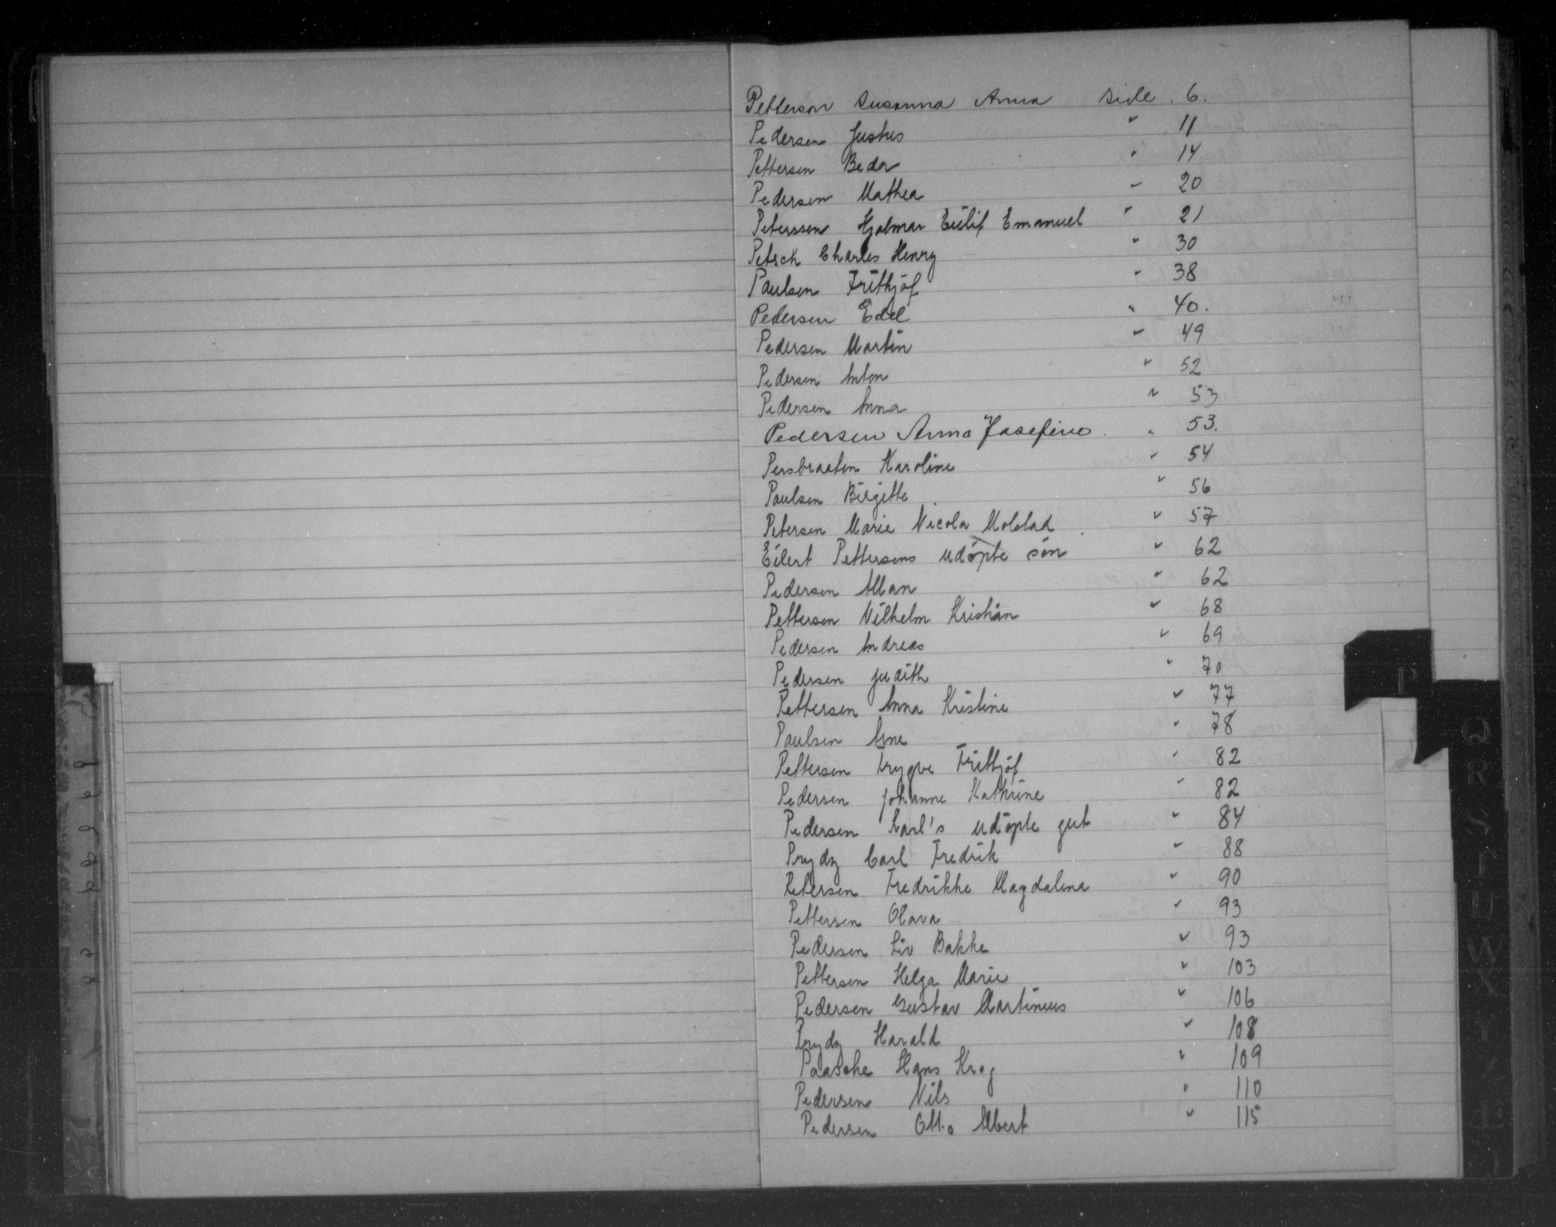 Petterson Susanna Anna side . 6.
Pedersen Justus " 11
Pettersen Beda " 14
Pedersen Mathea " 20
Peterssen Hjalmar Eilif Emanuel " 21
Petsch Charles Henry " 30
Paulsen Frithjof " 38
Pedersen Edel " 40.
Pedersen Martin " 49
Pedersen Anton " 52
Pedersen Anna " 53
Pedersen Anna Josefine " 53.
Persbraaten Karoline " 54
Paulsen Birgitte " 56
Petersen Marie Nicola Molstad " 57
Eilert Pettersens udöpte sön " 62
Pedersen Allan " 62
Pettersen Vilhelm Kristian " 68
Pedersen Andreas " 69
Pedersen Judith " 70
Pettersen Anna Kristine " 77
Paulsen Arne " 78
Pettersen Trygve Frithjof " 82
Pedersen Johanne Kathrine " 82
Pedersen Karl's udöpte gut " 84
Prydz Carl Fredrik " 88
Petersen Fredrikke Magdalena " 90
Pettersen Olava " 93
Pedersen Liv Bakke " 93
Pettersen Helga Marie " 103
Pedersen Gustav Martinius " 106
Prydz Harald " 108
Paasche Hans Krog " 109
Pedersen Nils " 110
Pedersen Otto Albert " 115
P
Q
R
S
T
U
W
X
Y